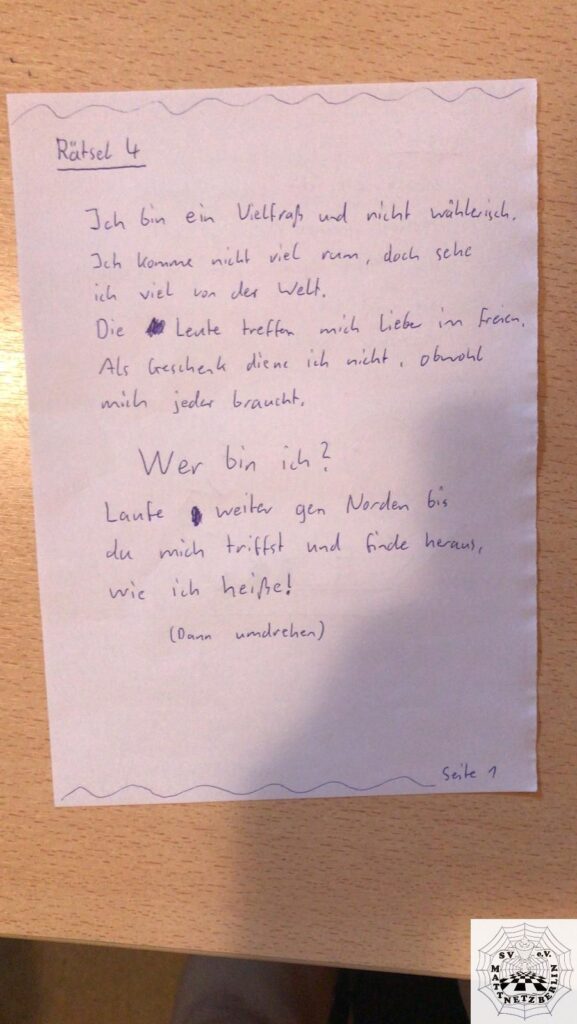 Rätsel 4
Ich bin ein Vielfraß und nicht wählerisch.
Ich komme nicht viel rum, doch sehe
ich viel von der Welt.
Die Leute treffen mich lieber im Freien.
Als Geschenk diene ich nicht, obwohl
mich jeder braucht.
Wer bin ich?
Laufe weiter gen Norden bis
du mich triffst und finde heraus,
wie ich heiße!
(Dann umdrehen)
Seite 1
SV e.V.
MATTNETZ BERLIN